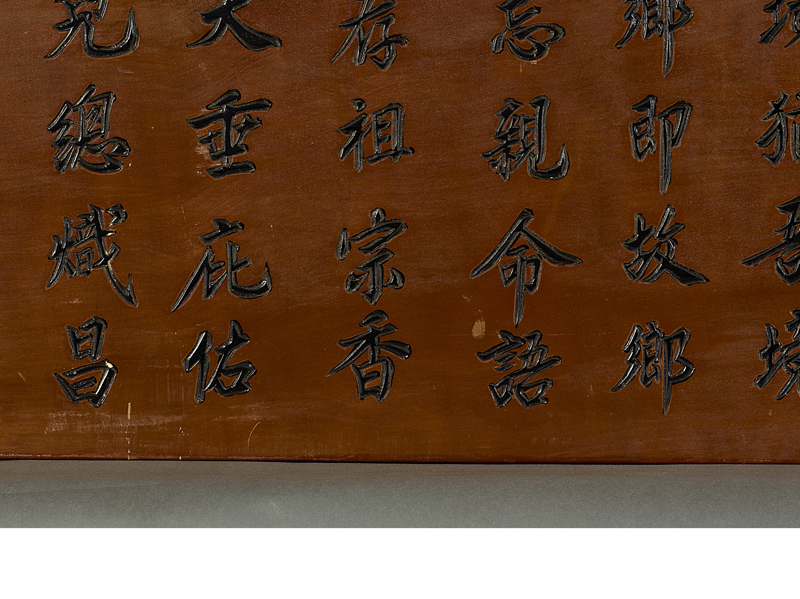 境猶吾境
鄉即故鄉
忘親命語
存祖宗香
天垂庇佑
兒總熾昌